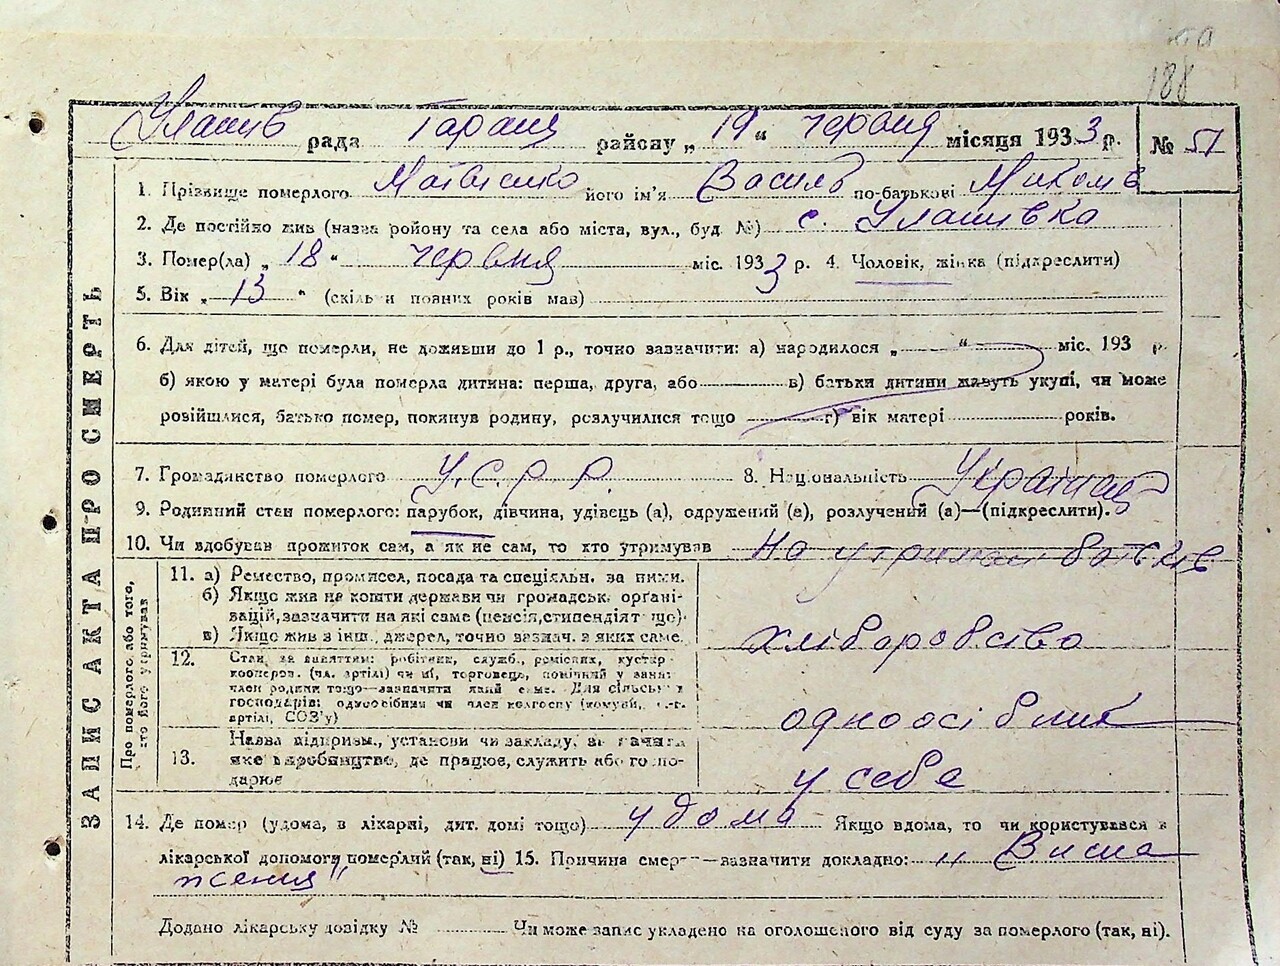 188
Улашів рада Таращ району „ 19 “ червня місяця 1933 р. № 51
ЗАПИС АКТА ПРО СМЕРТЬ
1. Прізвище померлого Матвієнко його ім'я Василь по-батькові Миколів
2. Де постійно жив (назва району та села або міста, вул., буд. №) с. Улашівка
3. Помер(ла) „ 18 “ червня міс. 1933 р. 4. Чоловік, жінка (підкреслити)
5. Вік „ 13 “ (скільки повних років мав)
6. Для дітей, що померли, не доживши до 1 р., точно зазначити: а) народилося „ “ міс. 193 р.
б) якою у матері була померла дитина: перша, друга, або в) батьки дитини живуть укупі, чи може
розійшлися, батько помер, покинув родину, розлучилися тощо г) вік матері років.
7. Громадянство померлого У.С.Р.Р. 8. Національність Українець
9. Родинний стан померлого: парубок, дівчина, удівець (а), одружений (а), розлучений (а)—(підкреслити).
10. Чи вдобував прожиток сам, а як не сам, то хто утримував На утриман батьків
Про померлого, або того, хто його утримував
11. а) Ремество, промисел, посада та спеціяльн. за ними.
б) Якщо жив на кошти держави чи громадськ. орґані-
зацій, зазначити на які саме (пенсія, стипендіят тощо).
в) Якщо жив з інш. джерел, точно зазнач. з яких саме.
хліборобство
12. Стан за заняттям: робітник, служб., ремісник, кустар
кооперов. (чл. артілі) чи ні, торговець, помічний у занят.
член родини тощо—зазначити який саме. Для сільськ.
господарів: одноосібник чи член колгоспу (комуни, с.-г.
артілі, СОЗ'у)
одноосібник
13. Назва підприєм., установи чи закладу, зазначити
яке виробництво, де працює, служить або госпо-
дарює
у себе
14. Де помер (удома, в лікарні, дит. домі тощо) удома Якщо вдома, то чи користувався з
лікарської допомоги померлий (так, ні) 15. Причина смерти—зазначити докладно: „ Висна
ження“
Додано лікарську довідку № Чи може запис укладено на оголошеного від суду за померлого (так, ні).